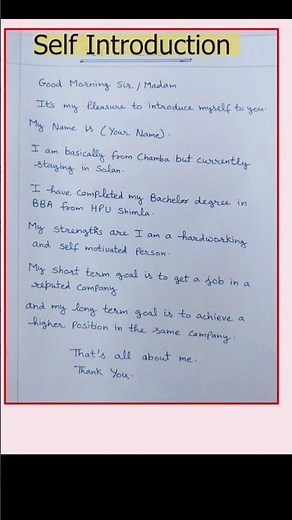 Self Introduction
Good Morning Sir / Madam
It's my Pleasure to introduce myself to you.
My Name is (Your Name).
I am basically from Chamba but currently
staying in Solan.
I have completed my Bachelor degree in
BBA from HPU Shimla.
My strengths are I am a hardworking
and self motivated Person.
My short term goal is to get a job in a
reputed company
and my long term goal is to achieve a
higher Position in the same company.
That's all about me.
Thank You.